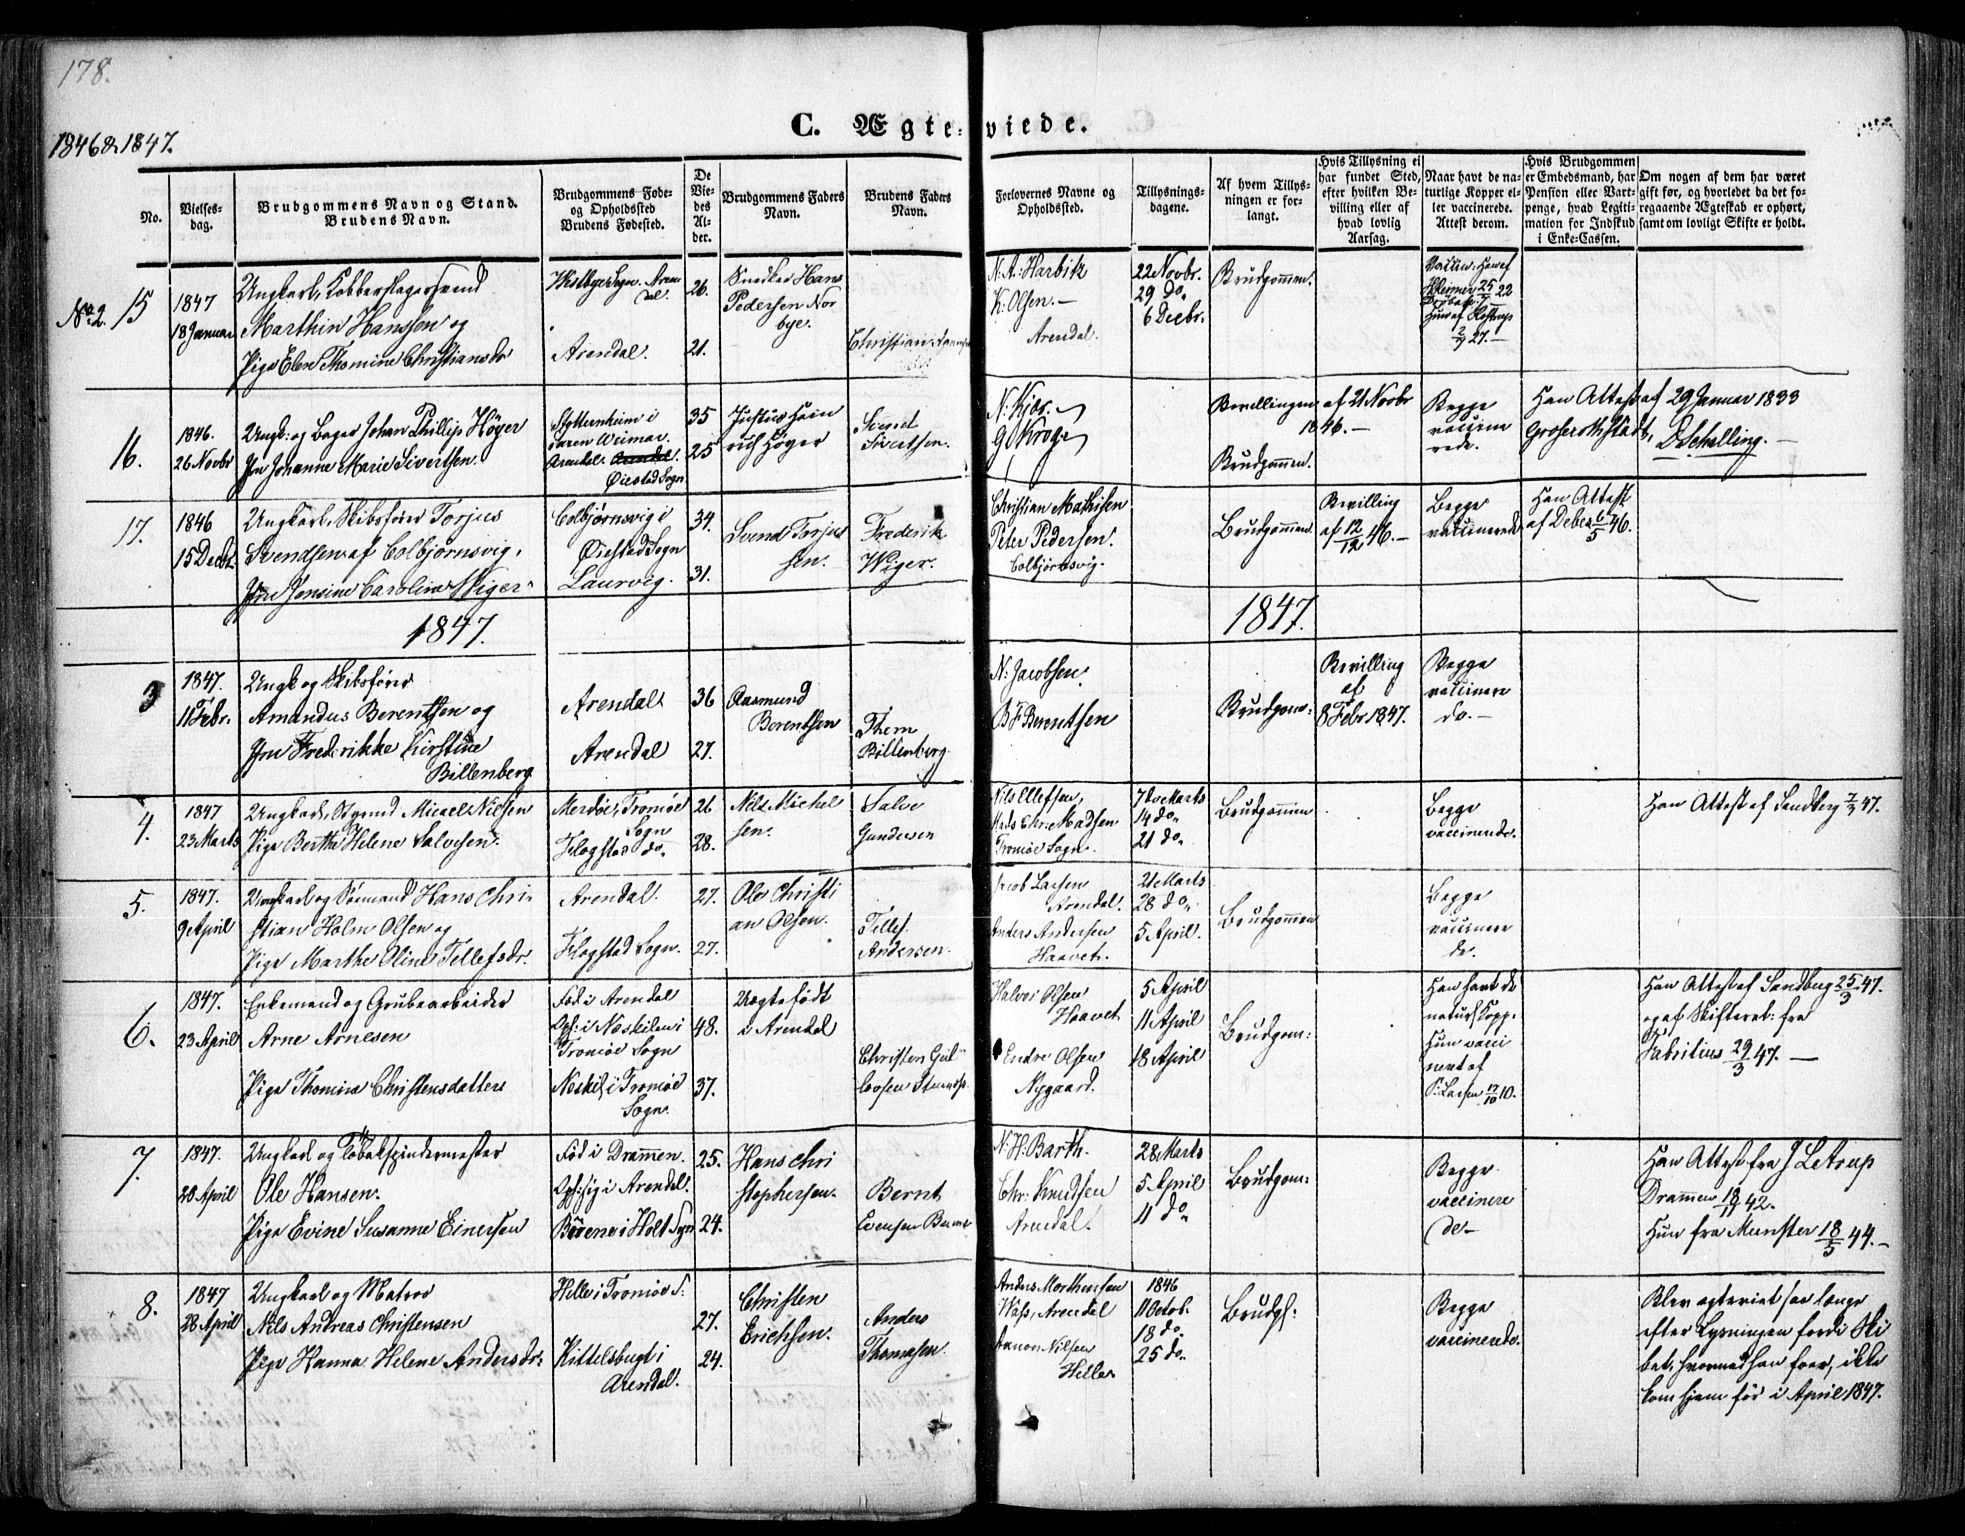 178.
1846 & 1847.
C. Ægteviede.
No.
Vielses-
dag.
Brudgommens Navn og Stand.
Brudens Navn.
Brudgommens Føde-
og Opholdssted
Brudens Fødested.
De
Vie-
des
Al-
der.
Brudgommens Faders
Navn.
Brudens Faders
Navn.
Forlovernes Navne og
Opholdssted.
Tillysnings-
dagene.
Af hvem Tillys-
ningen er for-
langt.
Hvis Tillysning ei
har fundet Sted,
efter hvilken Be-
villing eller af
hvad lovlig
Aarsag.
Naar havt de na-
turlige Kopper el-
ler vaccinerede.
Attest derom.
Hvis Brudgommen
er Embedsmand, har
Pension eller Vart-
penge, hvad Legiti-
mation for Indskud
i Enke-Cassen.
Om nogen af dem har været
gift før, og hvorledet da det fo-
regaaende Ægteskab er ophørt,
samt om lovligt Skifte er holdt.
No. 2. 15
1847
18 Januar
Ungkarl, Kobberslagersvend
Marthin Hanssen og
Pige Elen Thomine Christiansdr
Arendal.
26.
21.
Snedker Hans
Pedersen Nor
bye.
Christian
N. A. Harbik
K. Olsen. –
Arendal.
22 Novbr.
29 do.
6 Decbr.
Brudgommen.
16.
1846.
26 Novbr
Ungk: og Bager Johan Phillip Höyer
Jfr Johanne Marie Sivertsen.
Stotternheim i
Saxen Weimar.
Arendal. Arendal.
Øiestad Sogn
35
25
Justus Hein
rich Höyer
Svend
Sivertsen.
N. Kjær.
G. Kroge
Bevillingen af 21 Novbr
1846. –
Brudgommen.
Begge
vaccine
rede.
Han Attest af 29 Januar 1833
D. Schelling. –
17.
1846
15 Decbr.
Ungkarl, Skibsfører Torjus
Svendsen af Colbjørnsvig,
Jfr Jensine Caroline Wiger
Colbjørnsvig i
Øiestad Sogn
Laurvig.
34.
31.
Svend Torjus
sen.
Frederik
Wiger.
Christian Mathisen
Peter Pedersen.
Colbjørnsvig.
Brudgommen.
Bevilling
af 12/12 46. –
Begge
vaccinerede
Han Attest
1847.
1847.
3
1847.
11 Febr.
Ungk og Skibsfører
Amandus Berentsen og
Jfr Frederikke Kirstine
Billenberg
Arendal
Arendal
36
27.
Aasmund
Berentsen
Them
Billenberg.
N. Jacobsen.
B. F. Berentsen
Brudgom:
Bevilling
af
8 Febr 1847.
Begge
vaccinere
de. –
4.
1847
23 Marts
Michel Nielsen
Pige Berthe Helene Salvesen.
Merdøe, Tromøe
Sogn
Flagstad do.
26
28.
Nils Michel
sen.
Salve
Gundersen
Nils Ellefsen,
Mads Chr. Madsen
Tromøe Sogn.
7de Marts
14 do.
21 do.
Brudgommen
Begge
vaccinerede.
Han Attest af Sandberg 7/3 47.
5.
1847.
9 April
Ungkarl og Sømand Hans Chri-
stian Holm Olsen og
Pige Marthe Oline Tellefsdr.
Arendal.
Flagstad Sogn.
27.
27.
Ole Christi
an Olsen.
Tellef
Andersen.
Jacob Larsen
Arendal.
Anders Andersen
Haavet.
21 Marts
28 do.
5 April.
Brudgommen
Begge
vaccinere
de.
6.
1847.
23 April
Enkemand og Grubearbeider
Arne Arnesen
Pige Thomine Christensdatter
Fød i Arendal
Oph: i Neskilen i
Tromøe Sogn
Neskil i Tromøe
Sogn.
48.
37.
Uægtefødt
i Arendal
Christen Gul
Halvor Olsen
Haavet
Endre Olsen
Nygaard.
5 April
11 April
18 April
Brudgom:
Han havt de
naturl Kopp.
Hun vacci
neret af
P. Larsen 17/10 10.
Han Attest af Sandberg 25/3 47.
og af Skifteret: fra
Fabritius 29/3 47. –
7.
1847.
20 April
Ungkarl og Tobakspindermester
Ole Hansen.
Pige Evine Susanne Einersen
Fød i Drammen.
Oph: sig i Arendal.
i Holt Sogn
25.
24.
Hans Chri
stophersen.
Bernt
Evensen
N. H. Barth.
Chr: Knudsen
Arendal.
28 Marts
5 April
11 do.
Brudgom:
Begge
vaccinere
de –
Han Attest fra J Letrup
Drammen 18/11 42.
Hun fra Munster 18/5 44. –
8.
1847
28 April
Ungkarl og Matros
Nils Andreas Christensen
Pige Hanna Helene Andersdr:
Helle i Tromøe S.
Kittelsbugt i
Arendal.
27.
24.
Christen
Erichsen.
Anders
Thomesen.
Anders Morthensen
Arendal
Aanon Nilsen
Helle
1846
11 Octob.
18 do.
25 do.
Brudg:
Begge
vaccinerede.
Blev egteviet saa længe
efter Lysningen fordi Ski
bet, hvormed han foer, ikke
kom hjem før i April 1847.